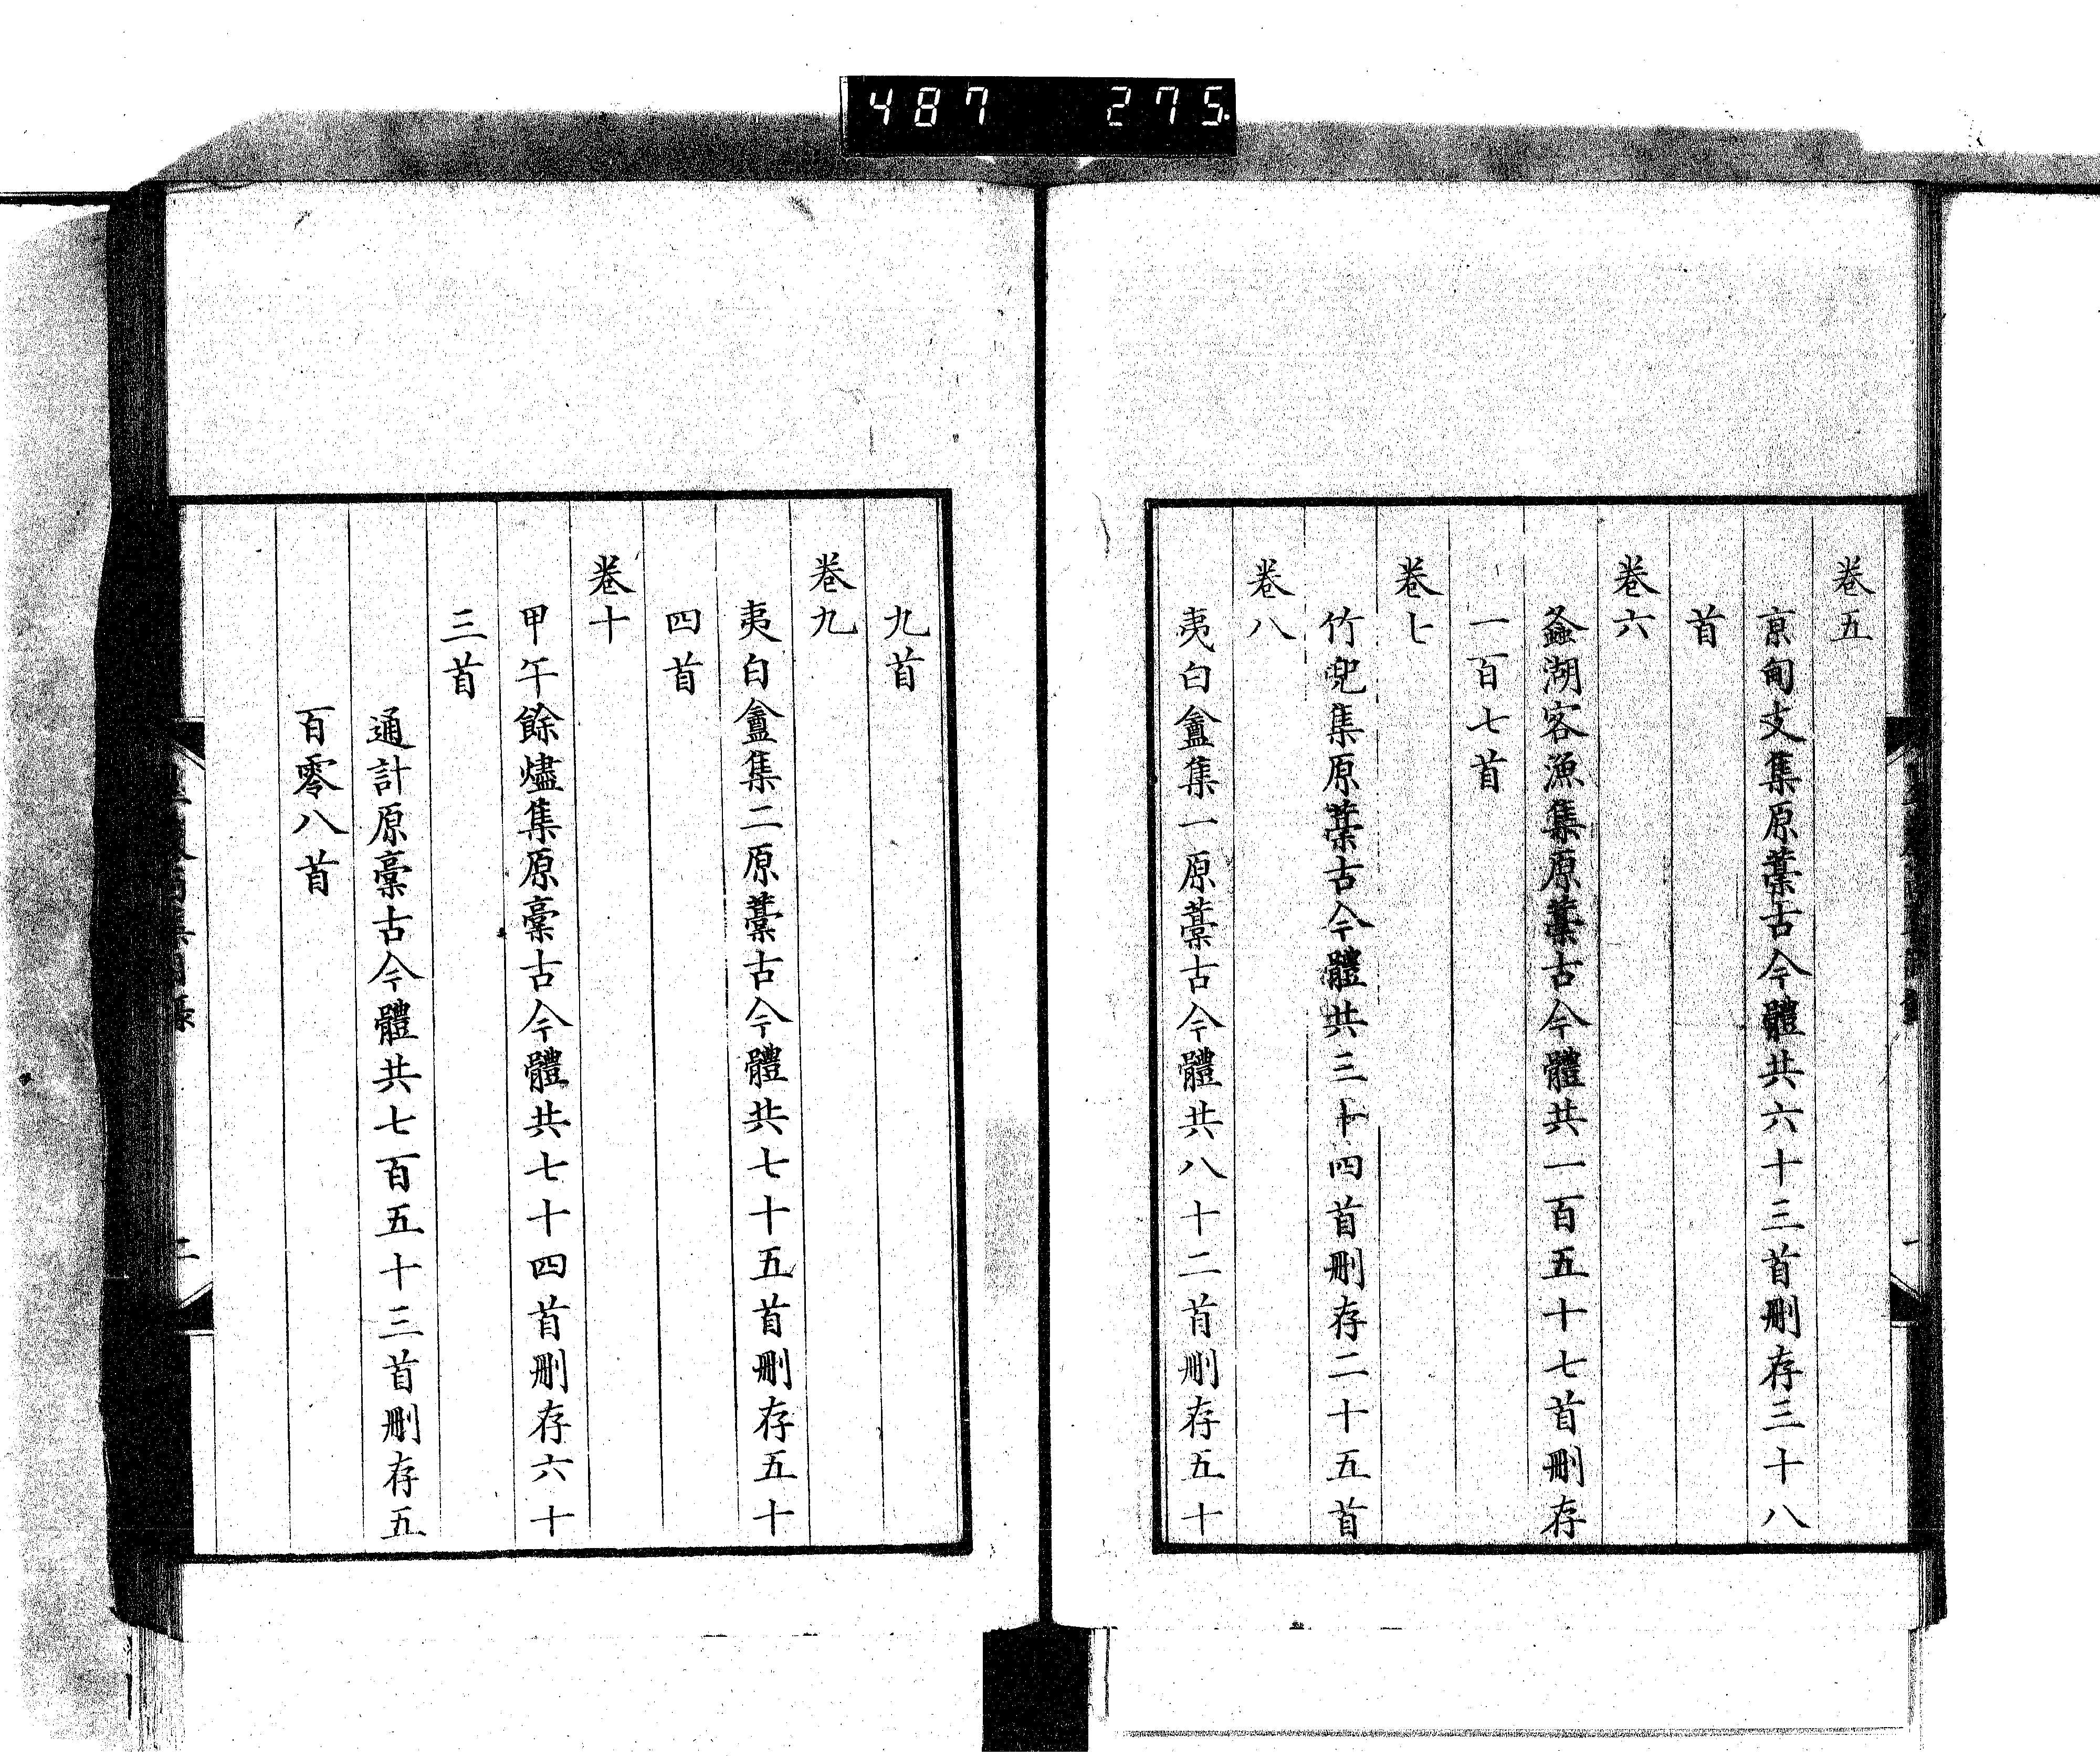 487 275
卷五
京甸支集原藁古今體共六十三首刪存三十八
首
卷六
蠡湖客漁集原藁古今體共一百五十七首刪存
一百七首
卷七
竹兜集原藁古今體共三十四首刪存二十五首
卷八
夷白盦集一原藁古今體共八十二首刪存五十
九首
卷九
夷白盦集二原藁古今體共七十五首刪存五十
四首
卷十
甲午餘燼集原稾古今體共七十四首刪存六十
三首
通計原稾古今體共七百五十三首刪存五
百零八首
二